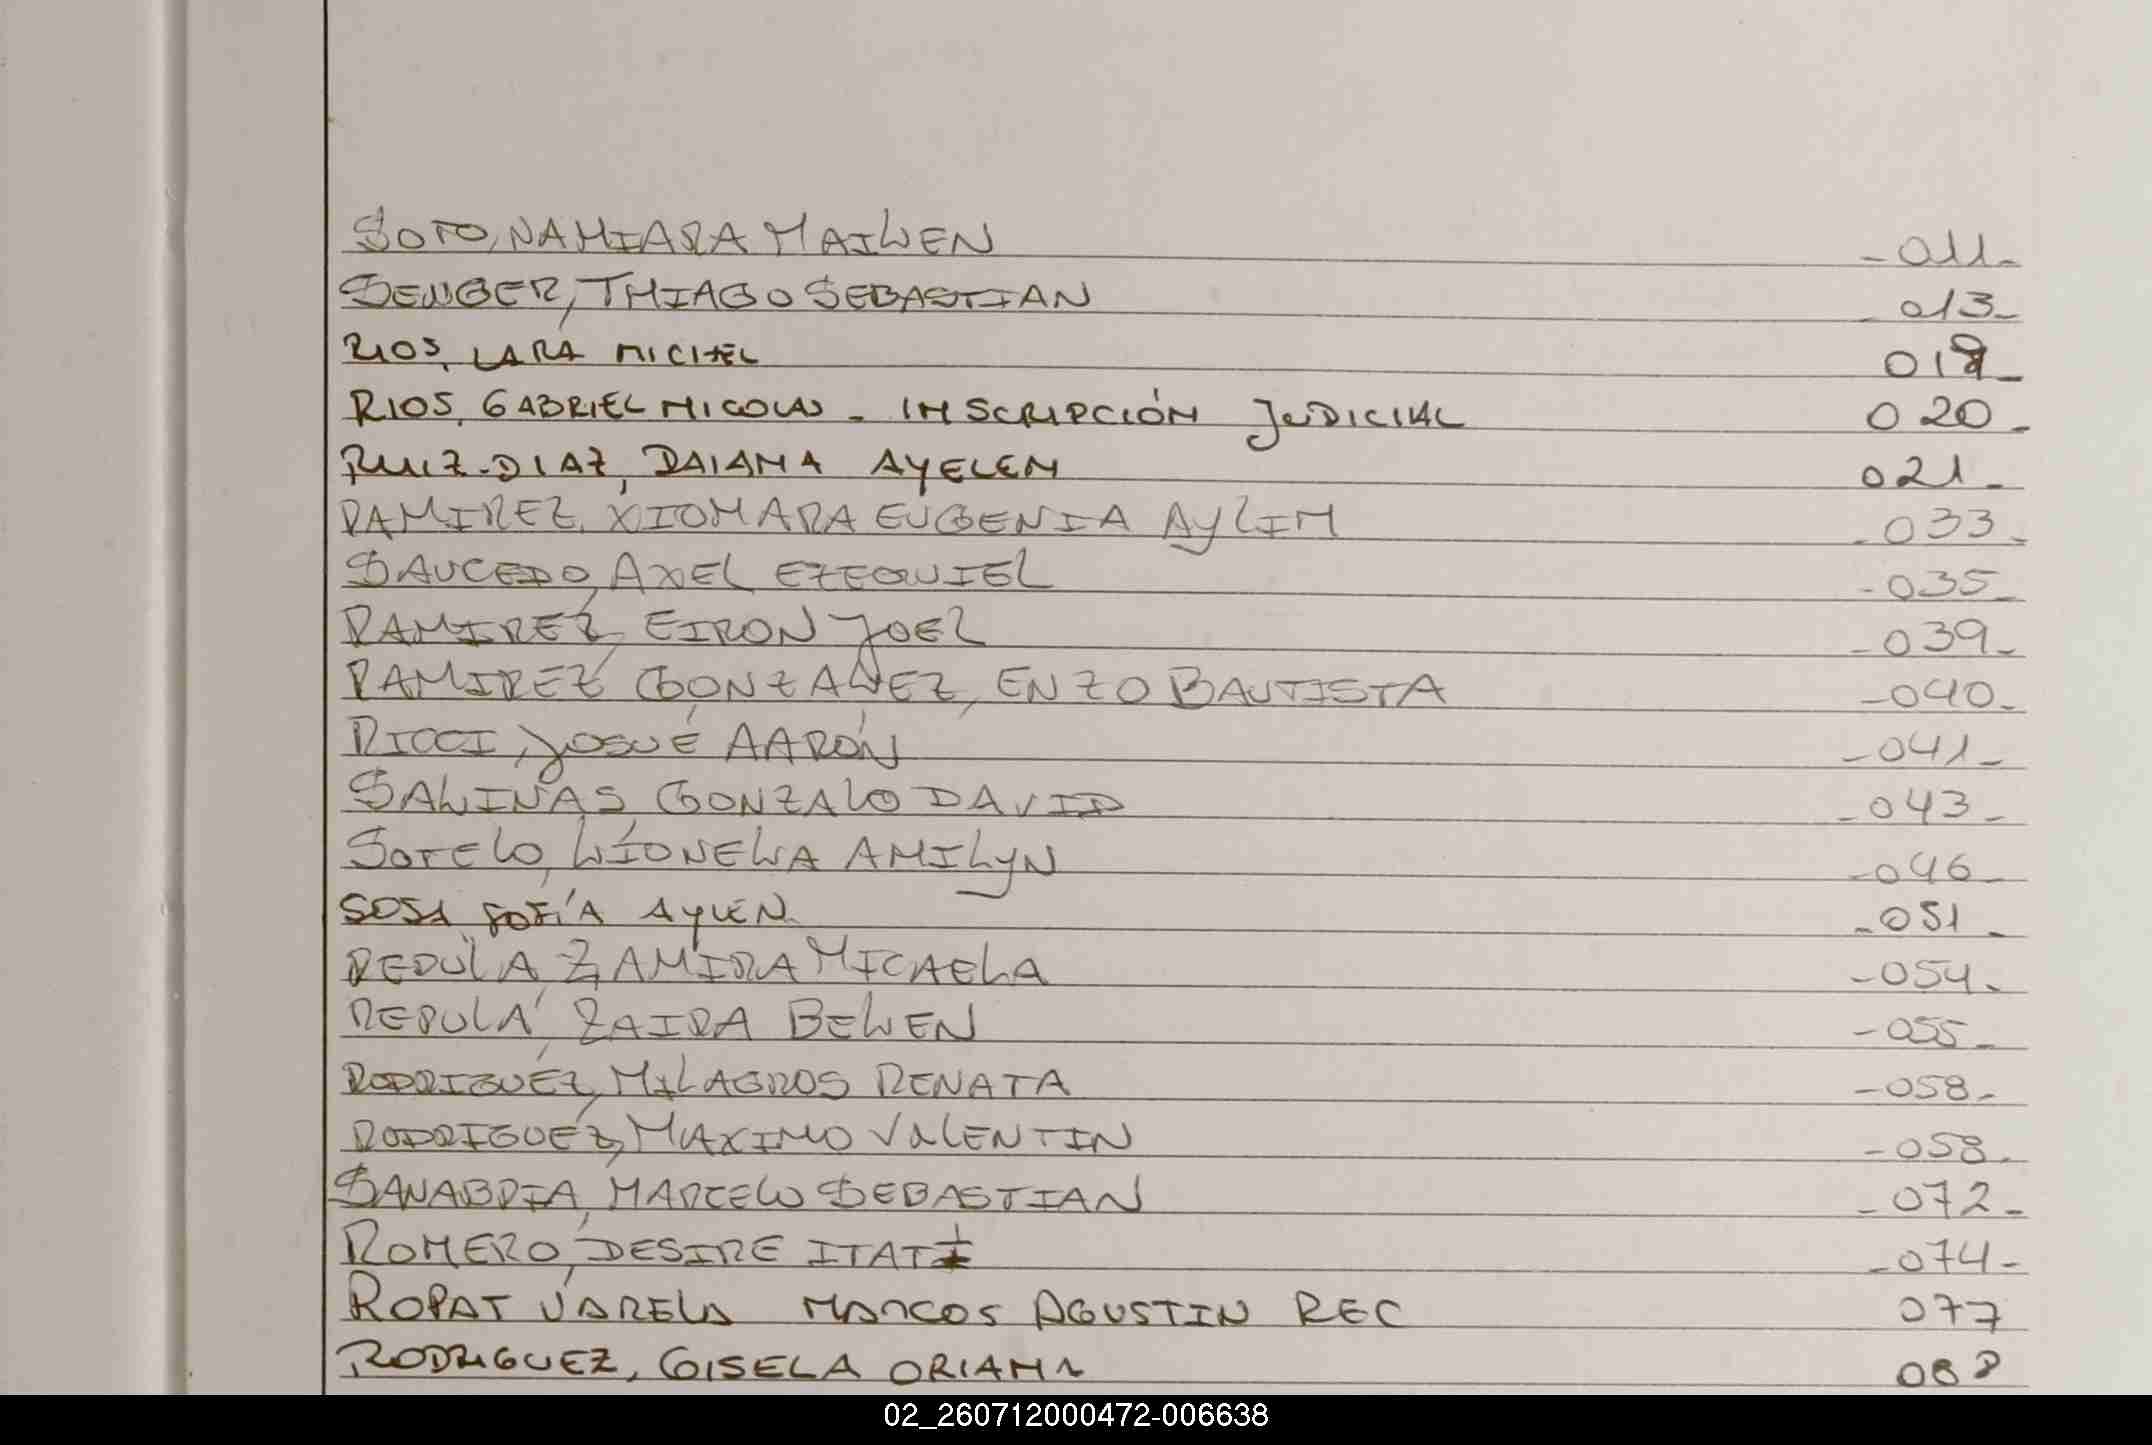 SOTO, NAHIARA MAILEN - 011 -
SENGER, THIAGO SEBASTIAN - 013 -
RIOS, LARA MICHEL
RIOS, GABRIEL NICOLAS - INSCRIPCIÓN JUDICIAL 020 -
RUIZ-DIAZ, DAIANA AYELEN 021 -
RAMIREZ, XIOMARA EUGENIA AYLIM - 033 -
SAUCEDO, AXEL EZEQUIEL - 035 -
RAMIREZ, EIRON JOEL - 039 -
RAMIREZ GONZALEZ, ENZO BAUTISTA - 040 -
RICCI, JOSUÉ AARÓN - 041 -
SALINAS, GONZALO DAVID - 043 -
SOTELO, LIONELA AMILYN - 046 -
SOSA SOFÍA AYLEN - 051 -
REPULA, ZAMIRA MICAELA - 054 -
REPULA, ZAIRA BELEN - 055 -
RODRIGUEZ, MILAGROS RENATA - 058 -
RODRIGUEZ, MAXIMO VALENTIN - 058 -
SANABRIA, MARCELO SEBASTIAN - 072 -
ROMERO, DESIRE ITATI - 074 -
ROPAT VARELA MARCOS AGUSTIN REC 077
RODRIGUEZ, GISELA ORIANA
02_260712000472-006638